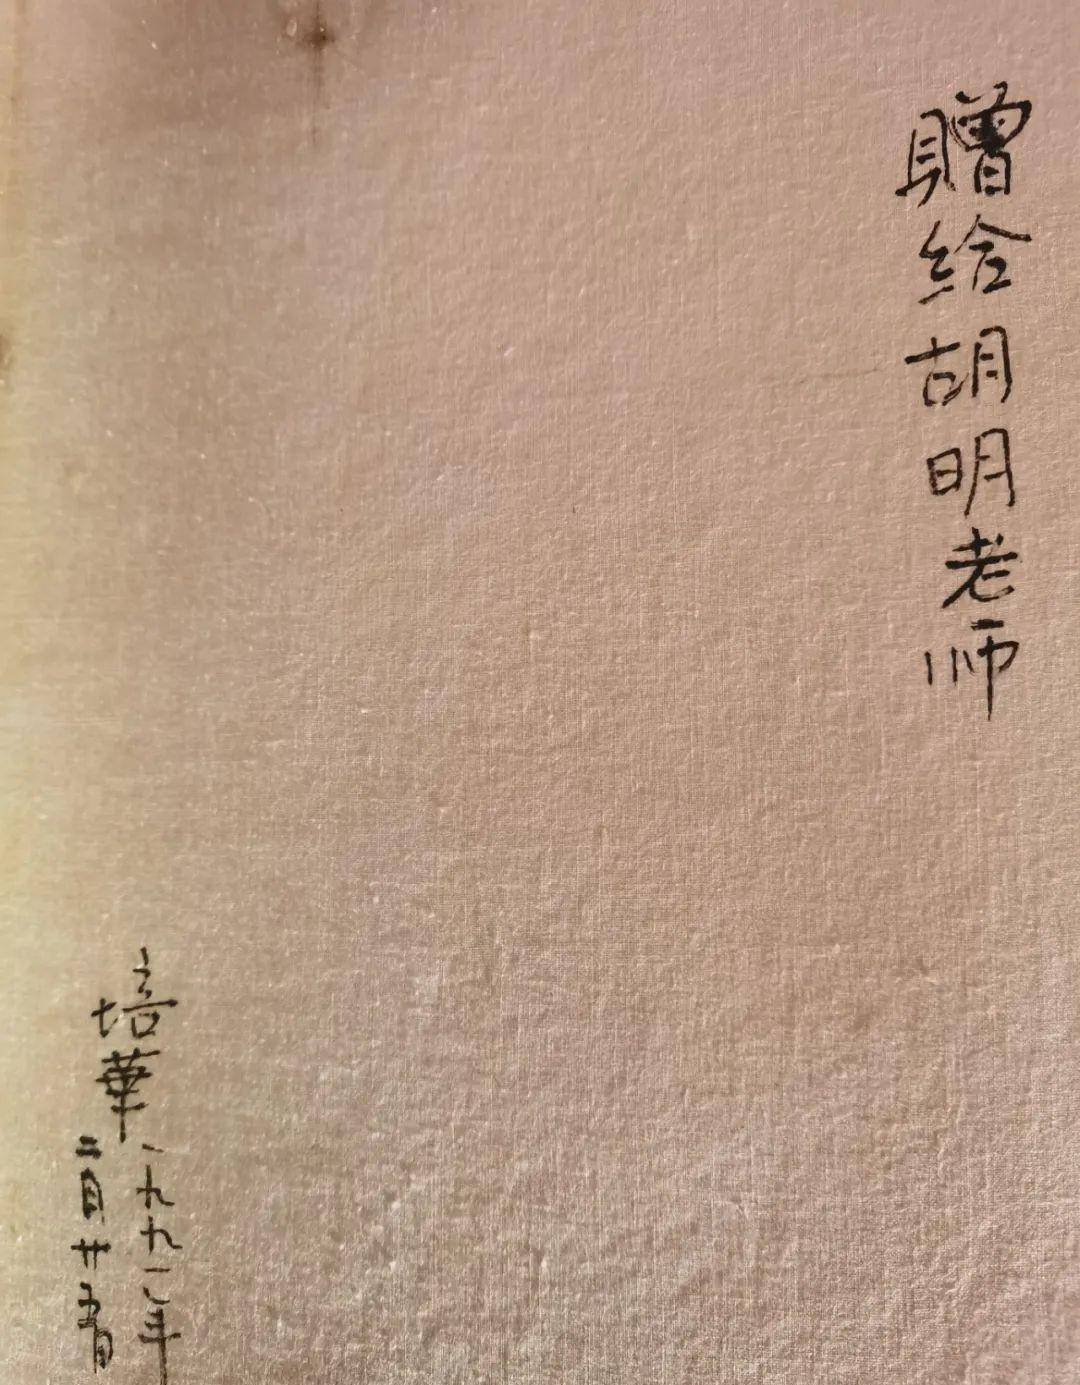 贈给胡明老师
培華
一九九一年
二月廿五日